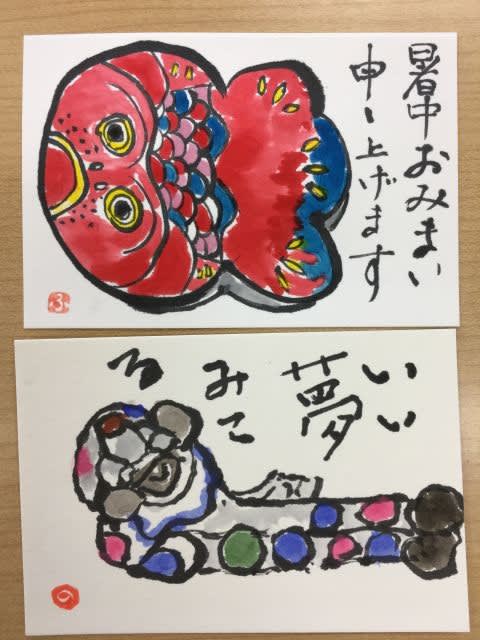 暑中おみまい
申し上げます
ふ
いい
夢
みて
る
の